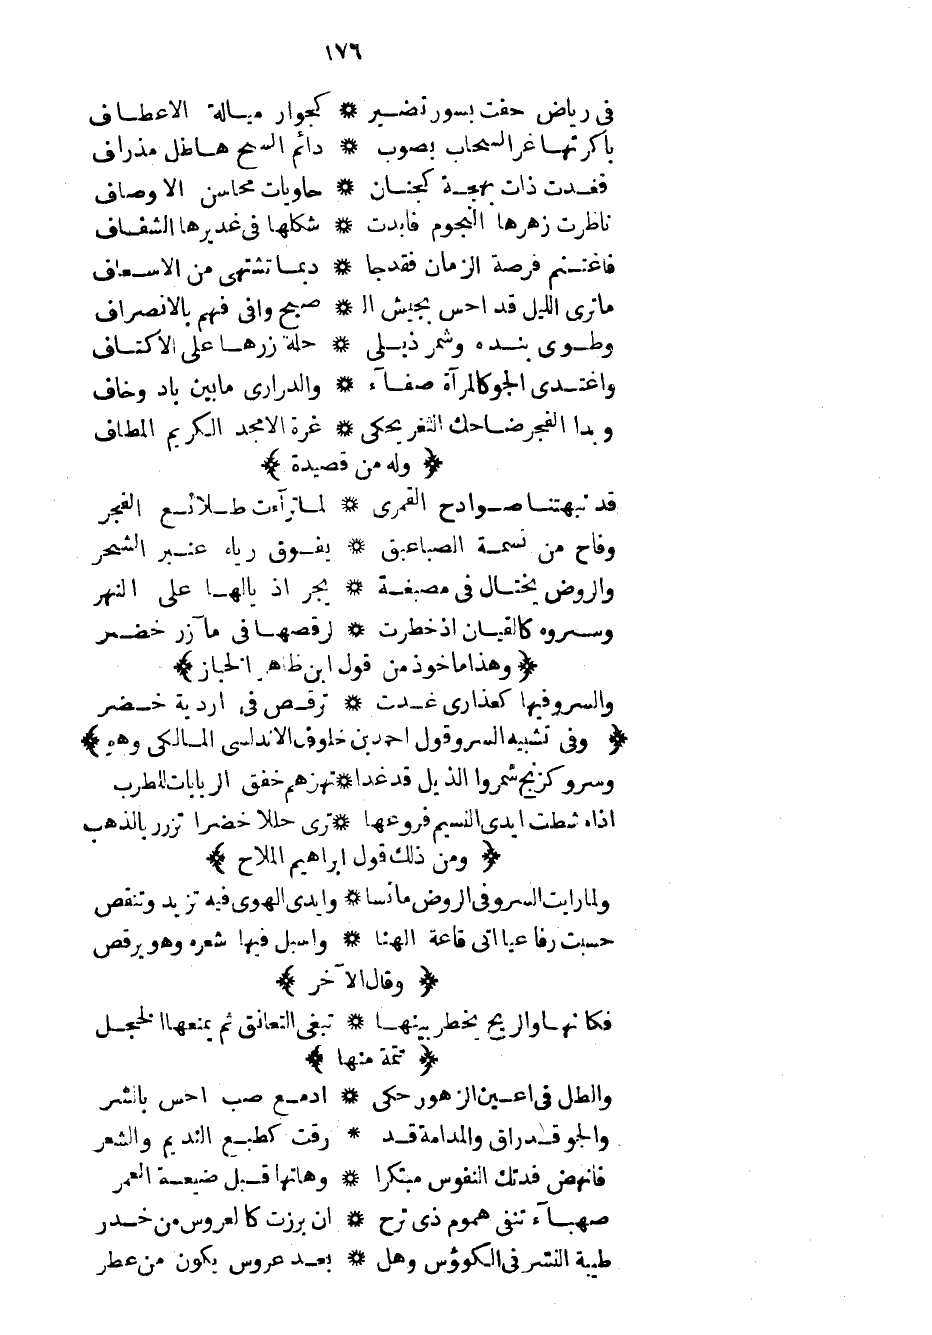 ١٧٦
فى رياض حفت بسور نضير ❋ كجوار ميالة الاعطاف
باكرتها غر السحاب بصوب ❋ دائم السح هاطل مذراف
فغدت ذات بهجة كجنان ❋ حاويات محاسن الاوصاف
ناظرت زهرها النجوم فابدت ❋ شكلها فى غديرها الشفاف
فاغتنم فرصة الزمان فقد جا ❋ د بما تشتهى من الاسعاف
ماترى الليل قد احس بجيش ال ❋ صبح وافى فهم بالانصراف
وطوى بنده وشمر ذيلى ❋ حلة زرها على الاكتاف
واغتدى الجو كالمرآة صفاء ❋ والدرارى مابين باد وخاف
وبدا الفجر ضاحك الثغر يحكى ❋ غرة الامجد الكريم المطاف
﴿ وله من قصيدة ﴾
قد نبهتنا صوادح القمرى ❋ لما ترآءت طلائع الفجر
وفاح من نسمة الصبا عبق ❋ يفوق رياه عنبر الشحر
والروض يختال فى مصبغة ❋ يجر اذيالها على النهر
وسروه كالقيان اذ خطرت ❋ لرقصها فى مآزر خضر
﴿ وهذا ماخوذ من قول ابن ظاهر الخباز ﴾
والسرو فيها كعذارى غدت ❋ ترقص فى اردية خضر
﴿ وفى تشبيه السرو قول احمد بن خلوف الاندلسى المالكى وهو ﴾
وسرو كزنج شمروا الذيل قد غدا ❋ تهزهم خفق الربابات للطرب
اذا نشطت ايدى النسيم فروعها ❋ ترى حللا خضرا تزرر بالذهب
﴿ ومن ذلك قول ابراهيم الملاح ﴾
ولما رايت السرو فى الروض مائسا ❋ وايدى الهوى فيه تزيد وتنقص
حسبت رفاعيا اتى قاعة الهنا ❋ واسبل فيها شعره وهو يرقص
﴿ وقال الآخر ﴾
فكانها والريح يخطر بينها ❋ تبغى التعانق ثم يمنعها الخجل
﴿ تتمة منها ﴾
والطل فى اعين الزهور حكى ❋ ادمع صب احس بالشر
والجو قد راق والمدامة قد * رقت كطبع النديم والشعر
فانهض فدتك النفوس مبتكرا ❋ وهاتها قبل ضيعة العمر
صهباء تنفى هموم ذى ترح ❋ ان برزت كالعروس من خدر
طيبة النشر فى الكوؤس وهل ❋ بعد عروس يكون من عطر